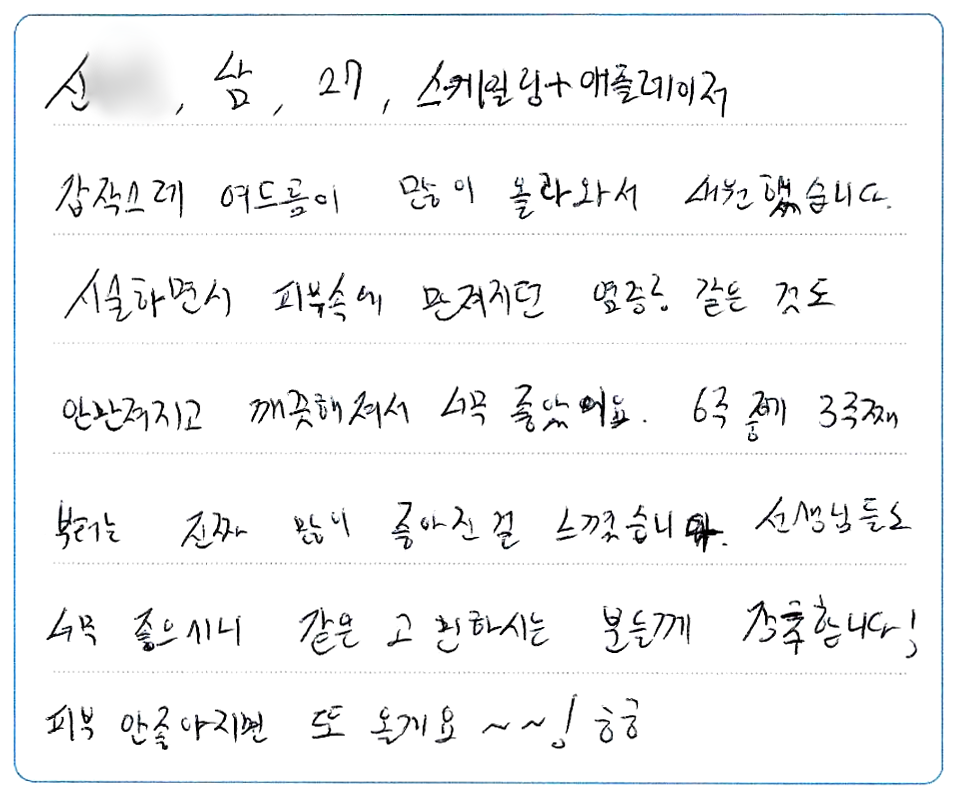 신 , 삼, 27, 스케일링+애플레이저
갑작스레 여드름이 많이 올라와서 내원했습니다.
시술하면서 피부속에 만져지던 염증들 같은 것도
안만져지고 깨끗해져서 너무 좋았어요. 6주 중에 3주째
부터는 진짜 많이 좋아진걸 느꼈습니다. 선생님들도
너무 좋으시니 같은 고민하시는 분들께 강추합니다!
피부 안좋아지면 또 올게요~~! ㅎㅎ